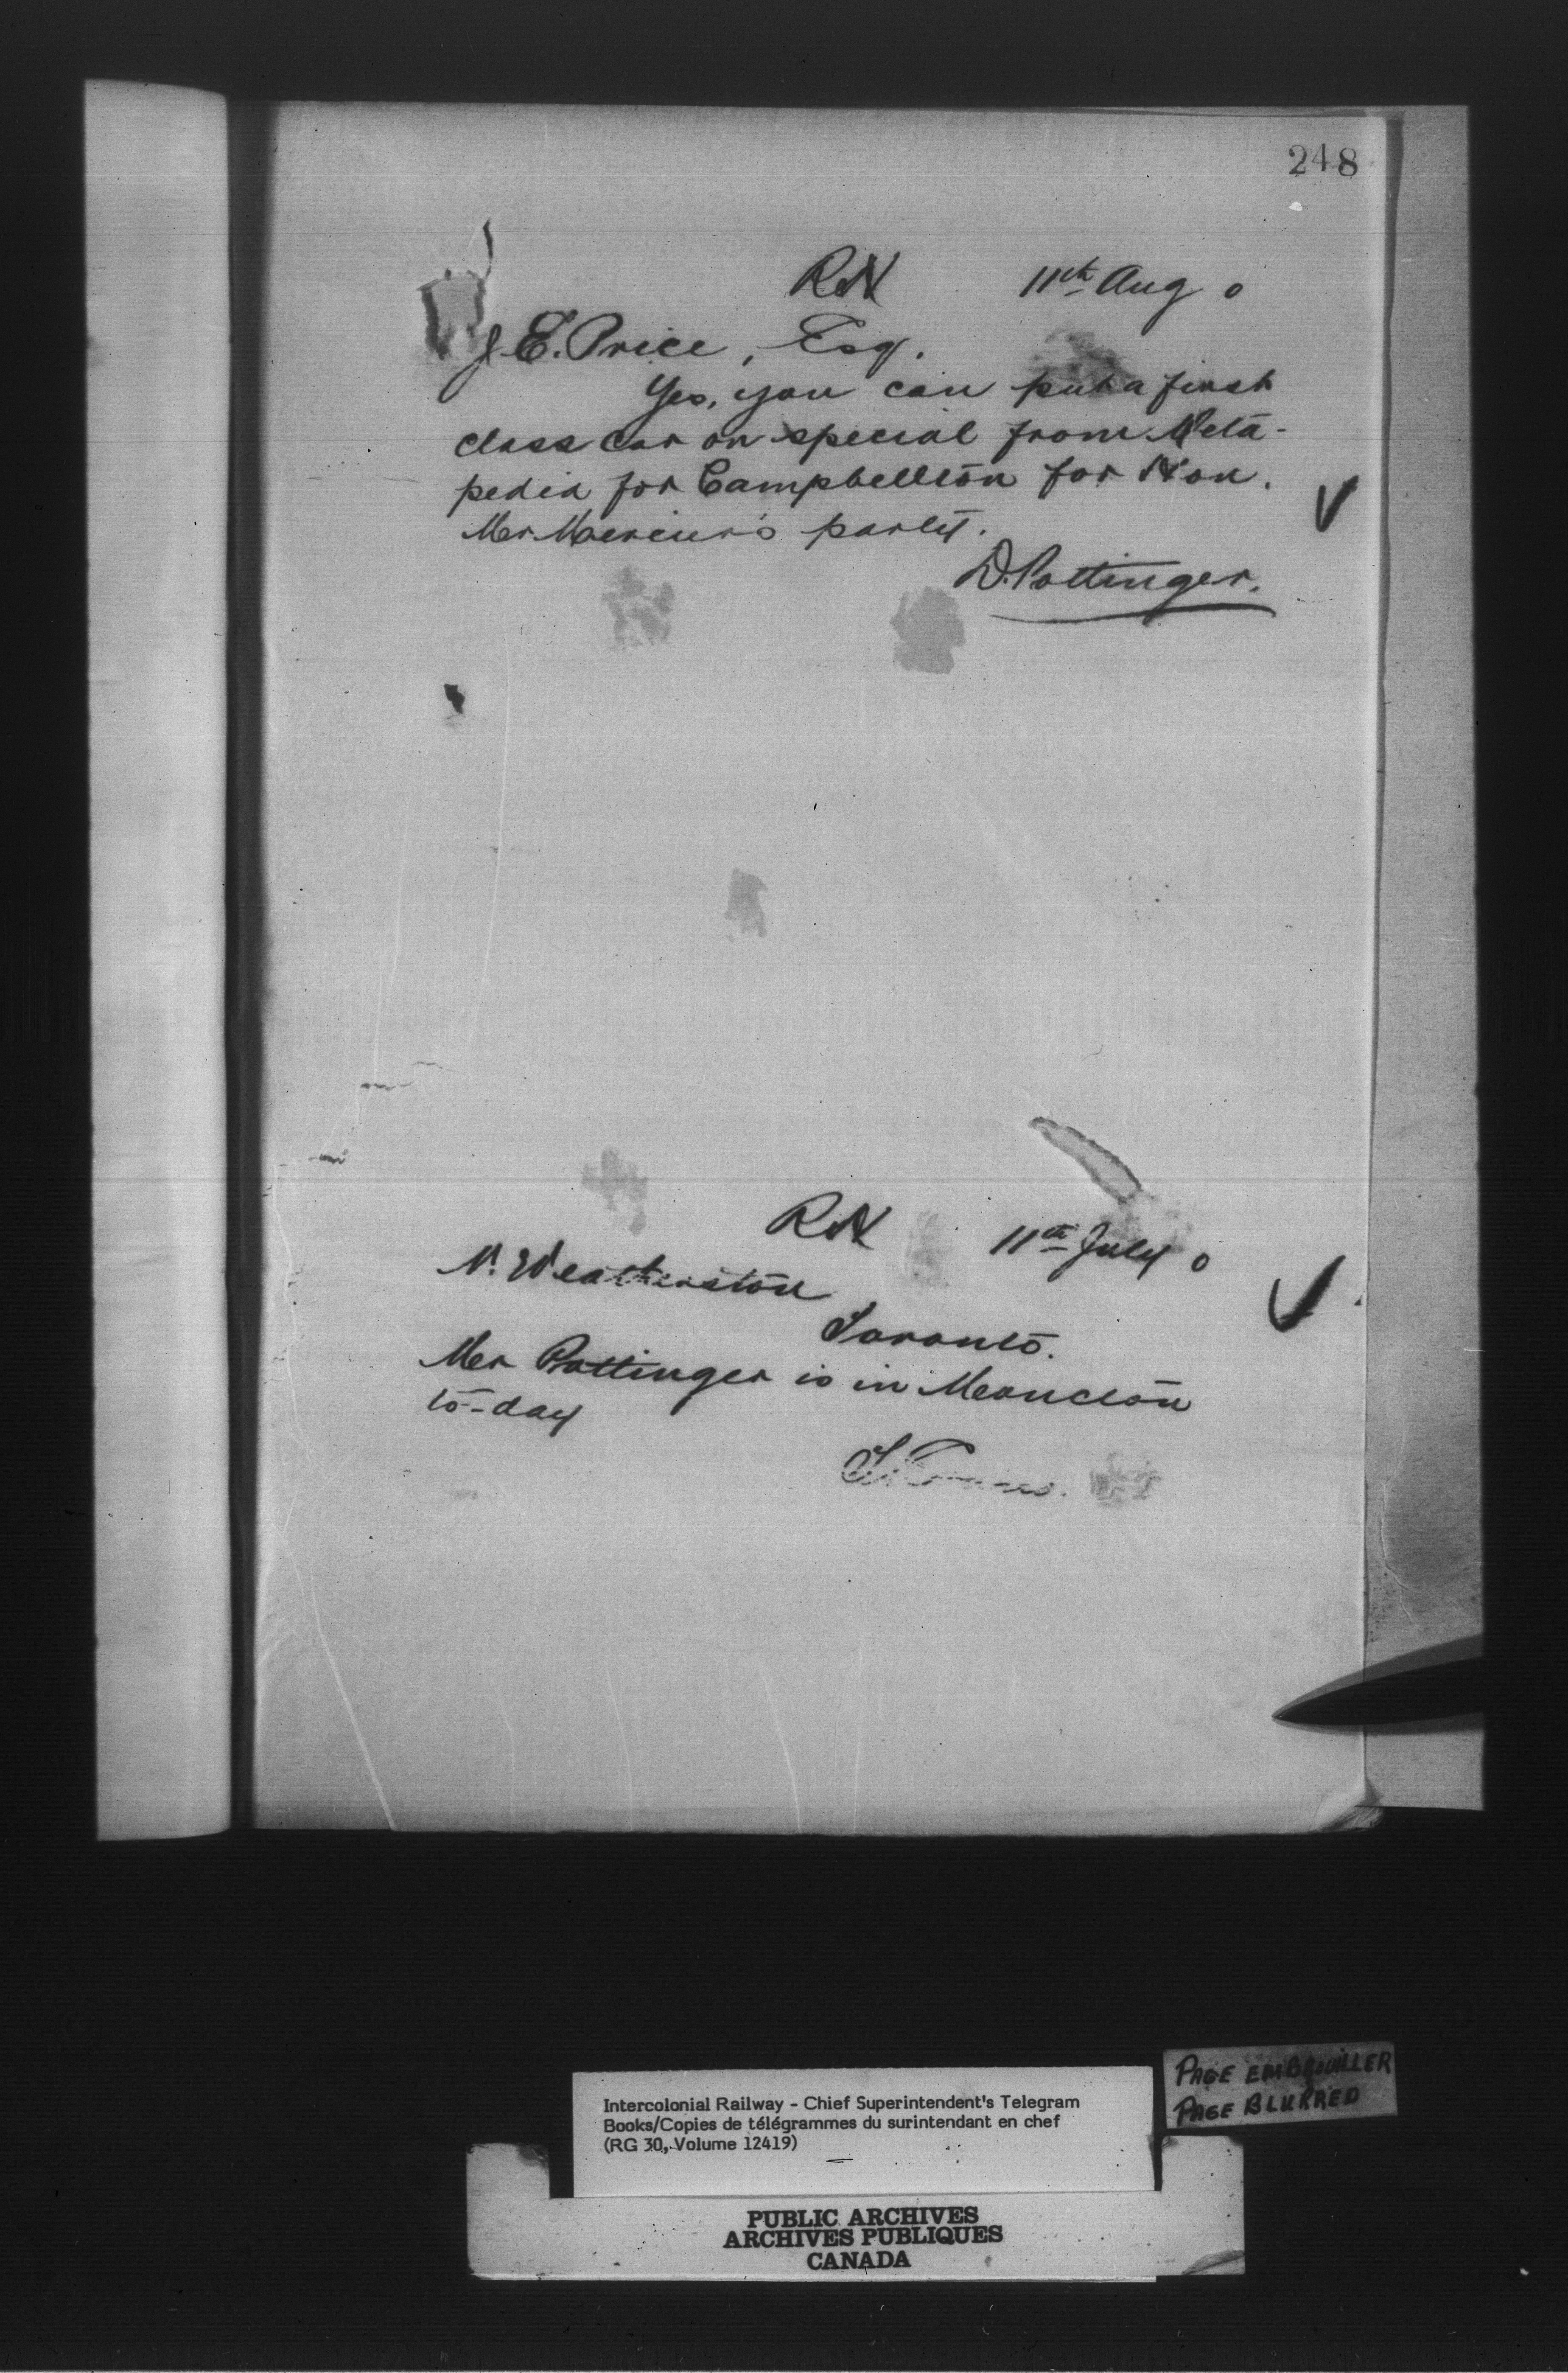 248
RN 11th Aug 0
J.E. Price, Esq.
Yes, you can put a first
class car on special from Meta-
pedia for Campbellton for Hon.
Mr Mercier's party.
D. Pottinger.
RN 11th July 0
N. Weatherston
Toronto.
Mr Pottinger is in Moncton
to-day
Intercolonial Railway - Chief Superintendent's Telegram
Books/Copies de télégrammes du surintendant en chef
(RG 30, Volume 12419)
PAGE EMBROUILLER
PAGE BLURRED
PUBLIC ARCHIVES
ARCHIVES PUBLIQUES
CANADA